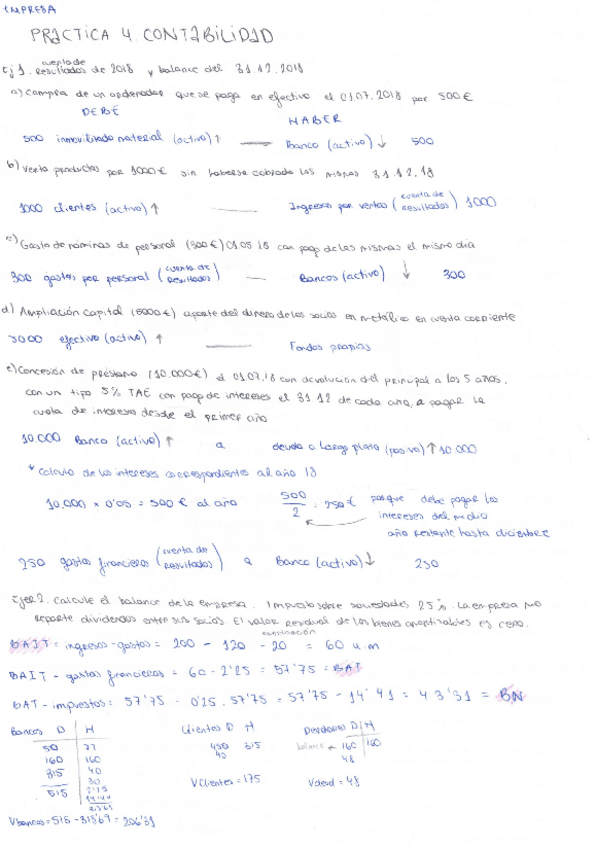 EMPRESA
PRACTICA 4. CONTABILIDAD
Ej 1. cuenta de resultados de 2018 y balance del 31.12.2018
a) Compra de un ordenador que se paga en efectivo el 01.07.2018 por 500€
DEBE HABER
500 inmovilizado material (activo) ↑ — Banco (activo) ↓ 500
b) Venta productos por 1000€ sin haberse cobrado las mismas 31.12.18
1000 clientes (activo) ↑ — Ingresos por ventas (cuenta de resultados) 1000
c) Gasto de nóminas de personal (300€) 01.05.18 con pago de las mismas el mismo día
300 gastos por personal (cuenta de resultados) — Bancos (activo) ↓ 300
d) Ampliación capital (5000€) aporte del dinero de los socios en metálico en cuenta corriente
5000 efectivo (activo) ↑ — Fondos propios
e) Concesión de préstamo (10.000€) el 01.07.18 con devolución del principal a los 5 años.
con un tipo 5% TAE con pago de intereses el 31 12 de cada año, a pagar la
cuota de intereses desde el primer año
10.000 Banco (activo) ↑ a deuda a largo plazo (pasivo) ↑ 10.000
* Calculo de los intereses correspondientes al año 18
10.000 x 0'05 = 500€ al año 500/2 = 250€ porque debe pagar los
intereses del medio
año restante hasta diciembre
250 gastos financieros (cuenta de resultados) a Banco (activo) ↓ 250
Ejer 2. Calcule el balance de la empresa. Impuesto sobre sociedades 25%. La empresa no
reparte dividendos entre sus socios. El valor residual de los bienes amortizables es cero.
BAIT = ingresos - gastos = 200 - 120 - 20 = 60 u m
BAIT - gastos financieros = 60 - 2'25 = 57'75 = BAT
BAT - impuestos = 57'75 - 0'25 · 57'75 = 57'75 - 14'41 = 43'31 = BN
Bancos D H Clientes D H
50
160 160
315 40
30
515 2'25
450 315
40
balance → 160 160
48
Vclientes = 175
Vdeud = 48
Vbancos = 515 - 313'69 = 206'31